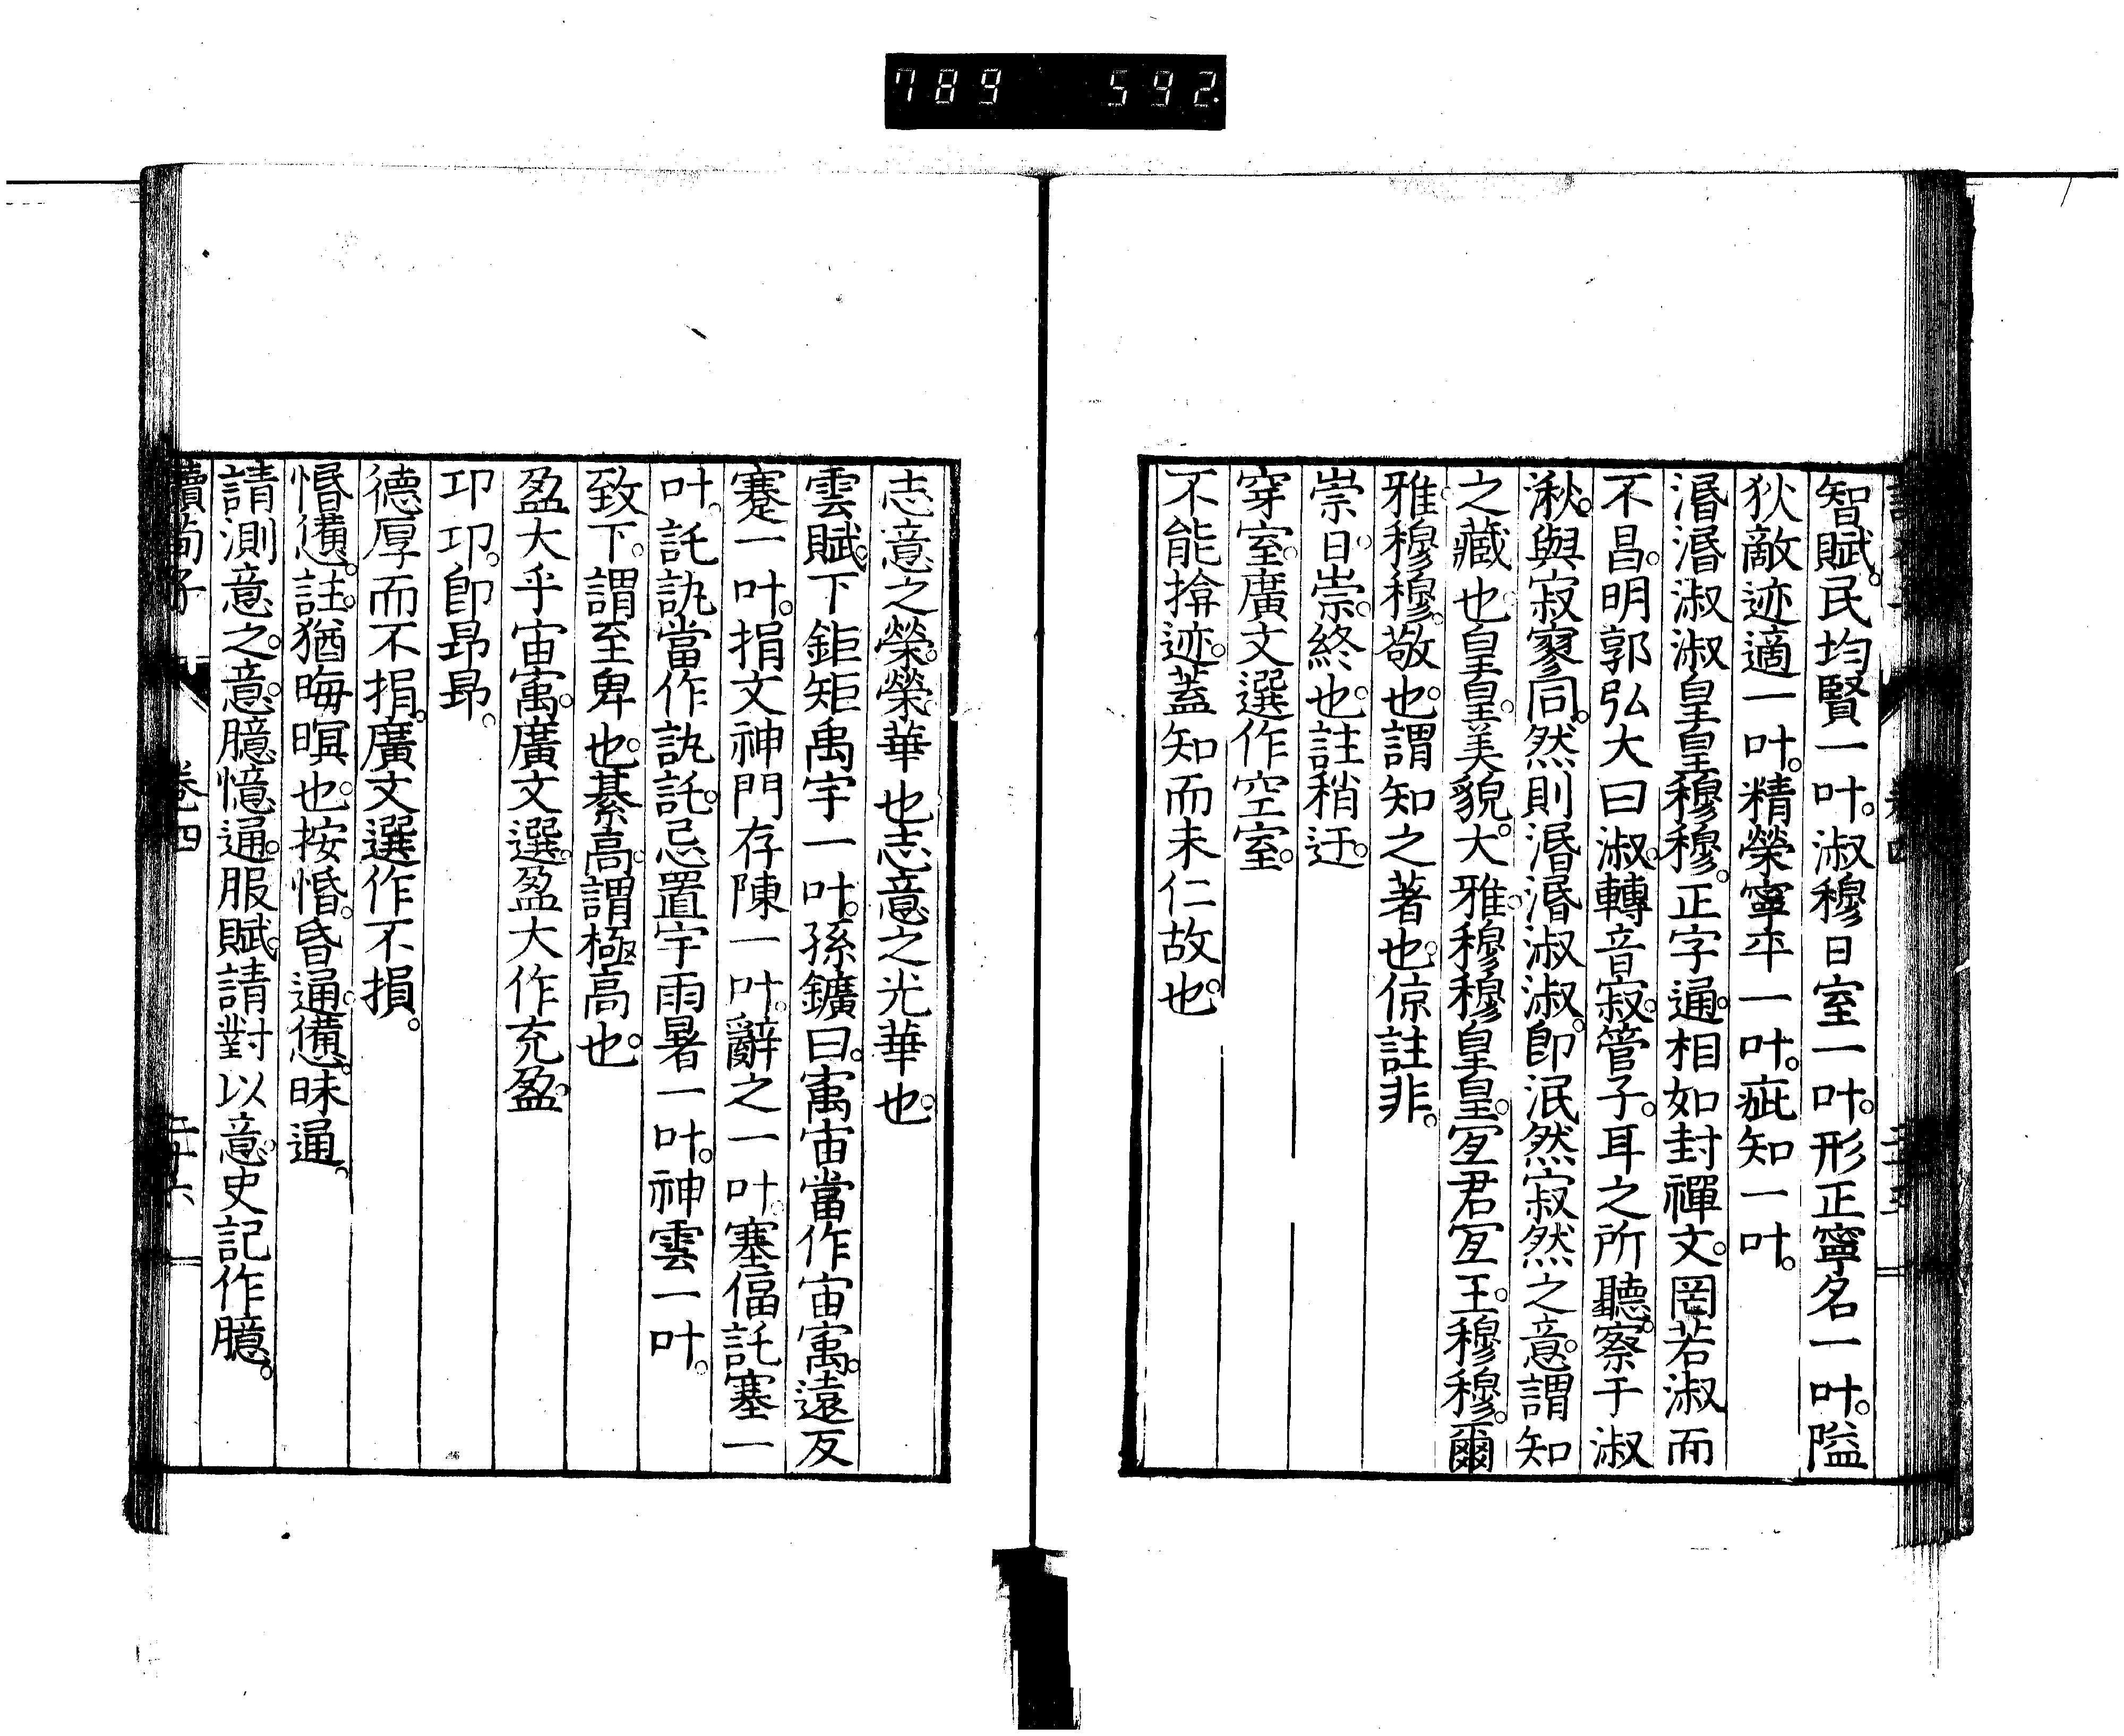 789 592
智賦。民均賢一叶。淑穆日室一叶。形正寧名一叶。隘
狄敵迹適一叶。精榮寧平一叶。疵知一叶。
湣湣淑淑皇皇穆穆。正字通。相如封禪文。罔若淑而
不昌。明郭弘大曰淑。轉音寂。管子。耳之所聽。察于淑
湫。與寂寥同。然則湣湣淑淑。卽泯然寂然之意。謂知
之藏也。皇皇。美貌。大雅。穆穆皇皇。宐君宐王。穆穆。爾
雅。穆穆。敬也。謂知之著也。倞註非。
崇日。崇。終也。註稍迂。
穿室。廣文選作空室。
不能揜迹。蓋知而未仁故也。
志意之榮。榮華也。志意之光華也。
雲賦。下鉅矩禹宇一叶。孫鑛曰。㝢宙當作宙㝢。遠反
蹇一叶。捐文神門存陳一叶。辭之一叶。塞偪託塞一
叶。託訙當作訙託。忌置宇雨暑一叶。神雲一叶。
致下。謂至卑也。綦高。謂極高也。
盈大乎宙㝢。廣文選。盈大作充盈。
卬卬。卽昻昻。
德厚而不捐。廣文選作不損。
惛憊。註。猶晦暝也。按惛。昏通。憊。昧通。
請測意之。意。臆憶通。服賦。請對以意。史記作臆。
讀荀子 卷四 二十六